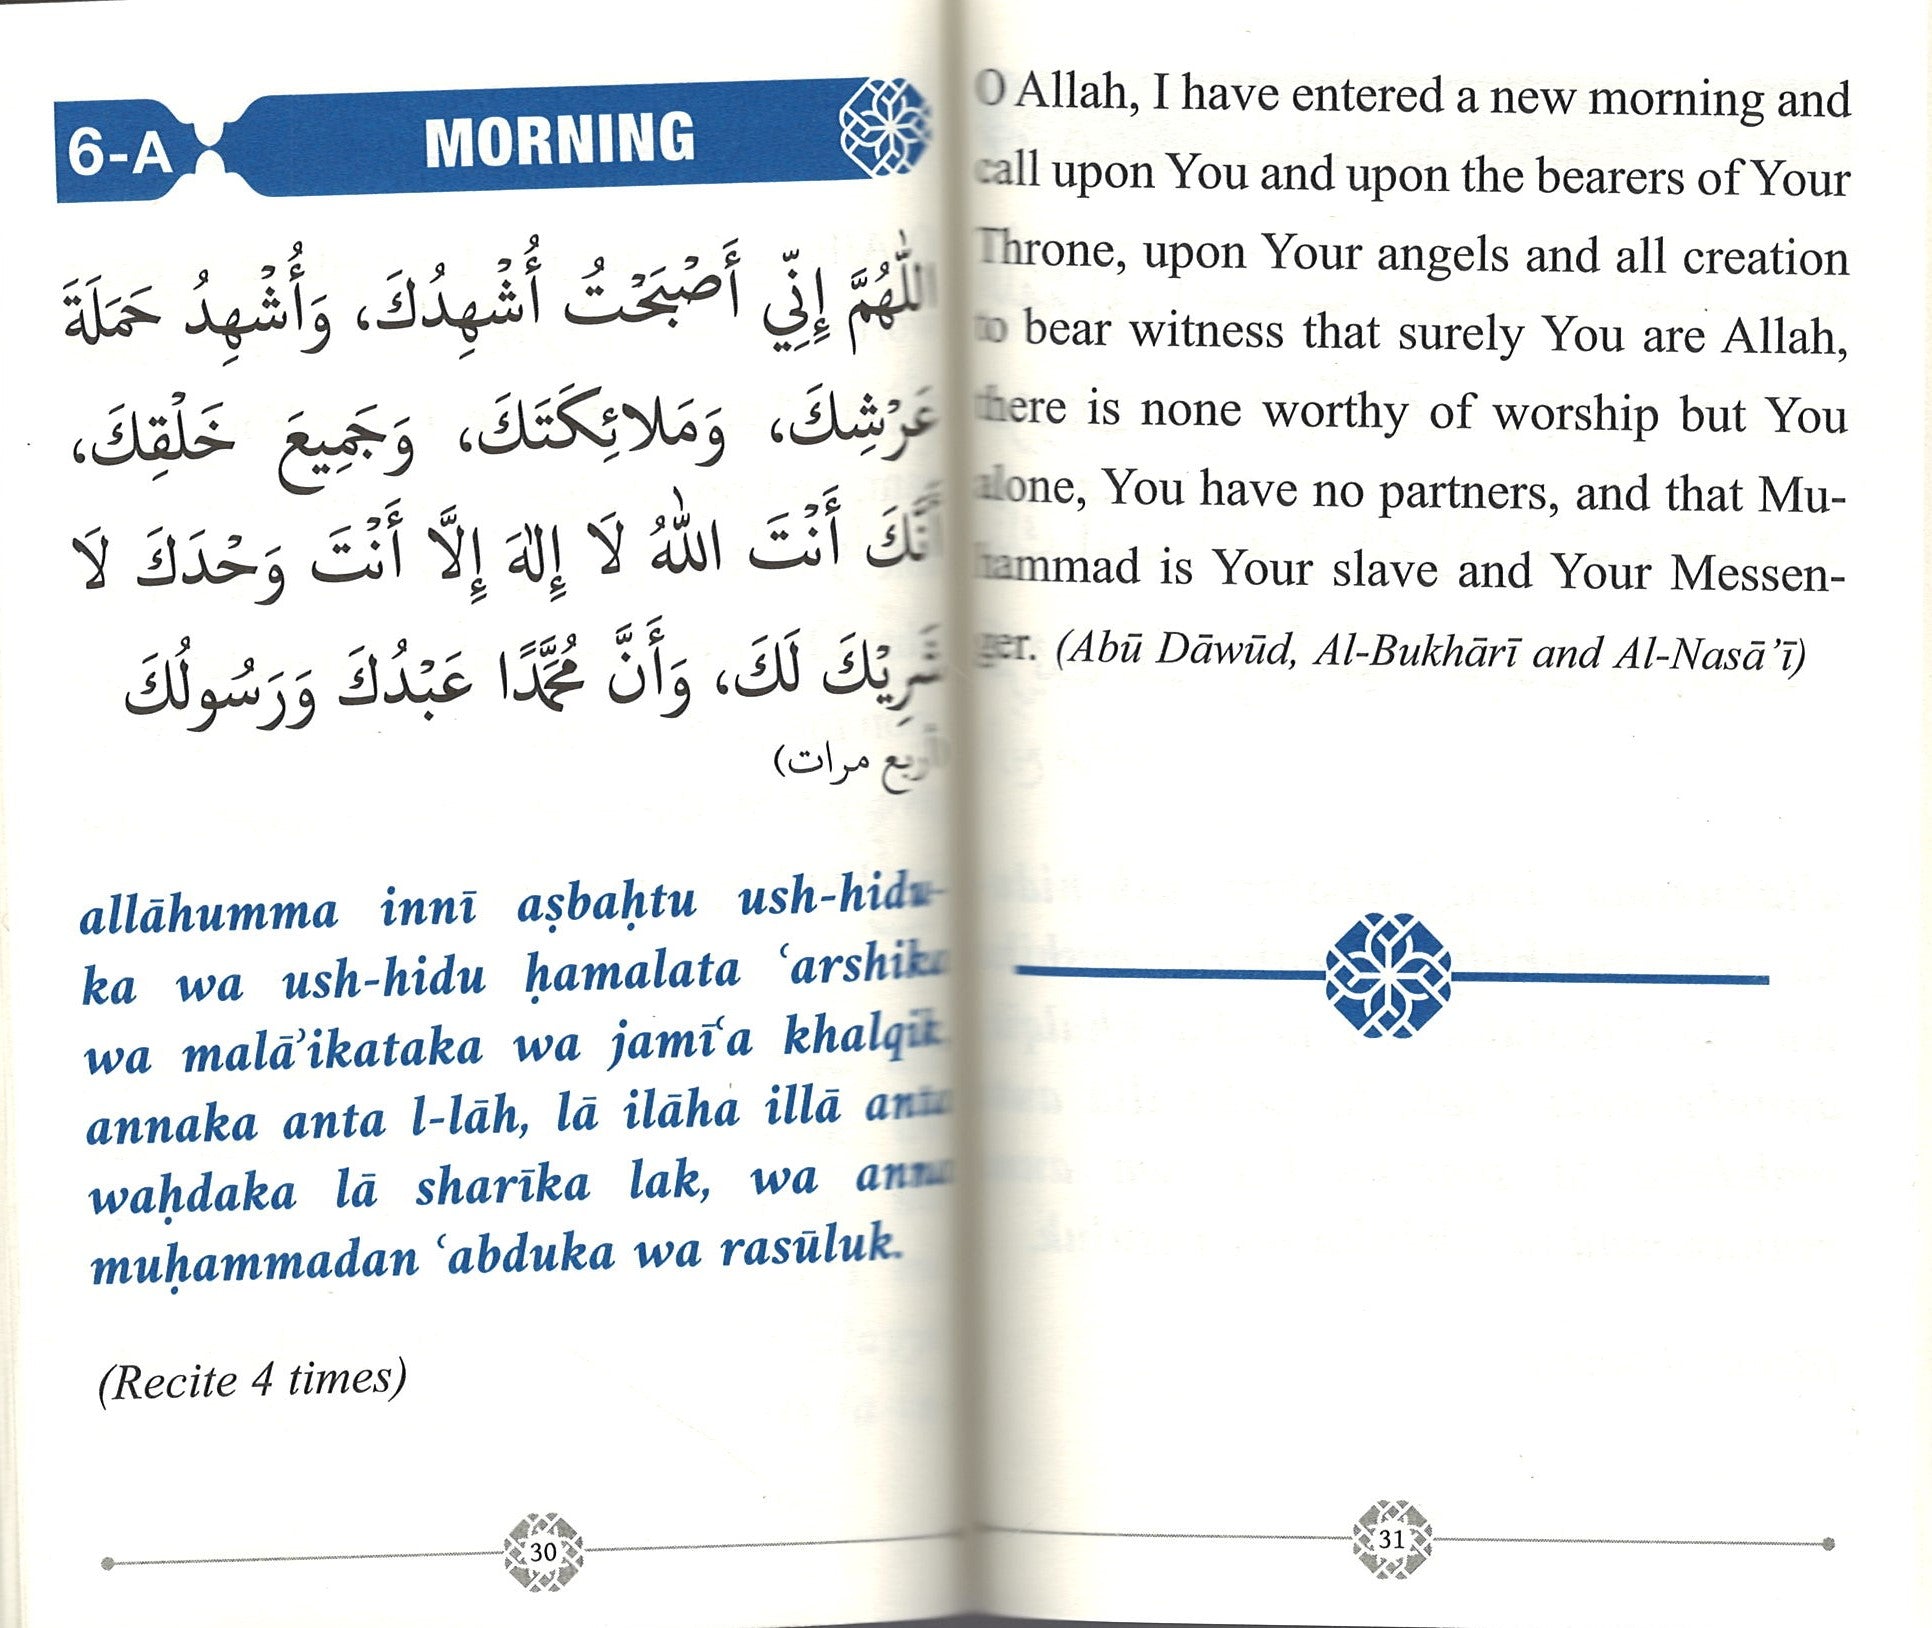 6-A MORNING
اللّٰهُمَّ إِنِّي أَصْبَحْتُ أُشْهِدُكَ، وَأُشْهِدُ حَمَلَةَ
عَرْشِكَ، وَمَلائِكَتَكَ، وَجَمِيعَ خَلْقِكَ،
أَنَّكَ أَنْتَ اللّٰهُ لَا إِلٰهَ إِلَّا أَنْتَ وَحْدَكَ لَا
شَرِيْكَ لَكَ، وَأَنَّ مُحَمَّدًا عَبْدُكَ وَرَسُولُكَ
(أربع مرات)
allāhumma innī aṣbaḥtu ush-hidu-
ka wa ush-hidu ḥamalata ʿarshika
wa malāʾikataka wa jamīʿa khalqik
annaka anta l-lāh, lā ilāha illā anta
waḥdaka lā sharīka lak, wa anna
muḥammadan ʿabduka wa rasūluk.
(Recite 4 times)
30
O Allah, I have entered a new morning and
call upon You and upon the bearers of Your
Throne, upon Your angels and all creation
to bear witness that surely You are Allah,
there is none worthy of worship but You
alone, You have no partners, and that Mu-
hammad is Your slave and Your Messen-
ger. (Abū Dāwūd, Al-Bukhārī and Al-Nasā’ī)
31